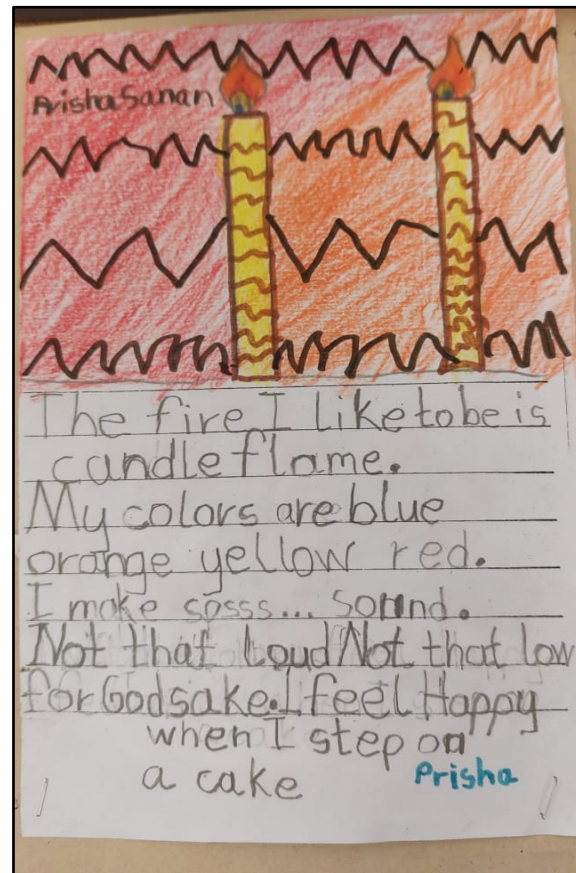 Prisha Sanan
The fire I like to be is
candle flame.
My colors are blue
orange yellow red.
I make ssss... sound.
Not that Loud Not that low
for God sake. I feel Happy
when I step on
a cake
Prisha